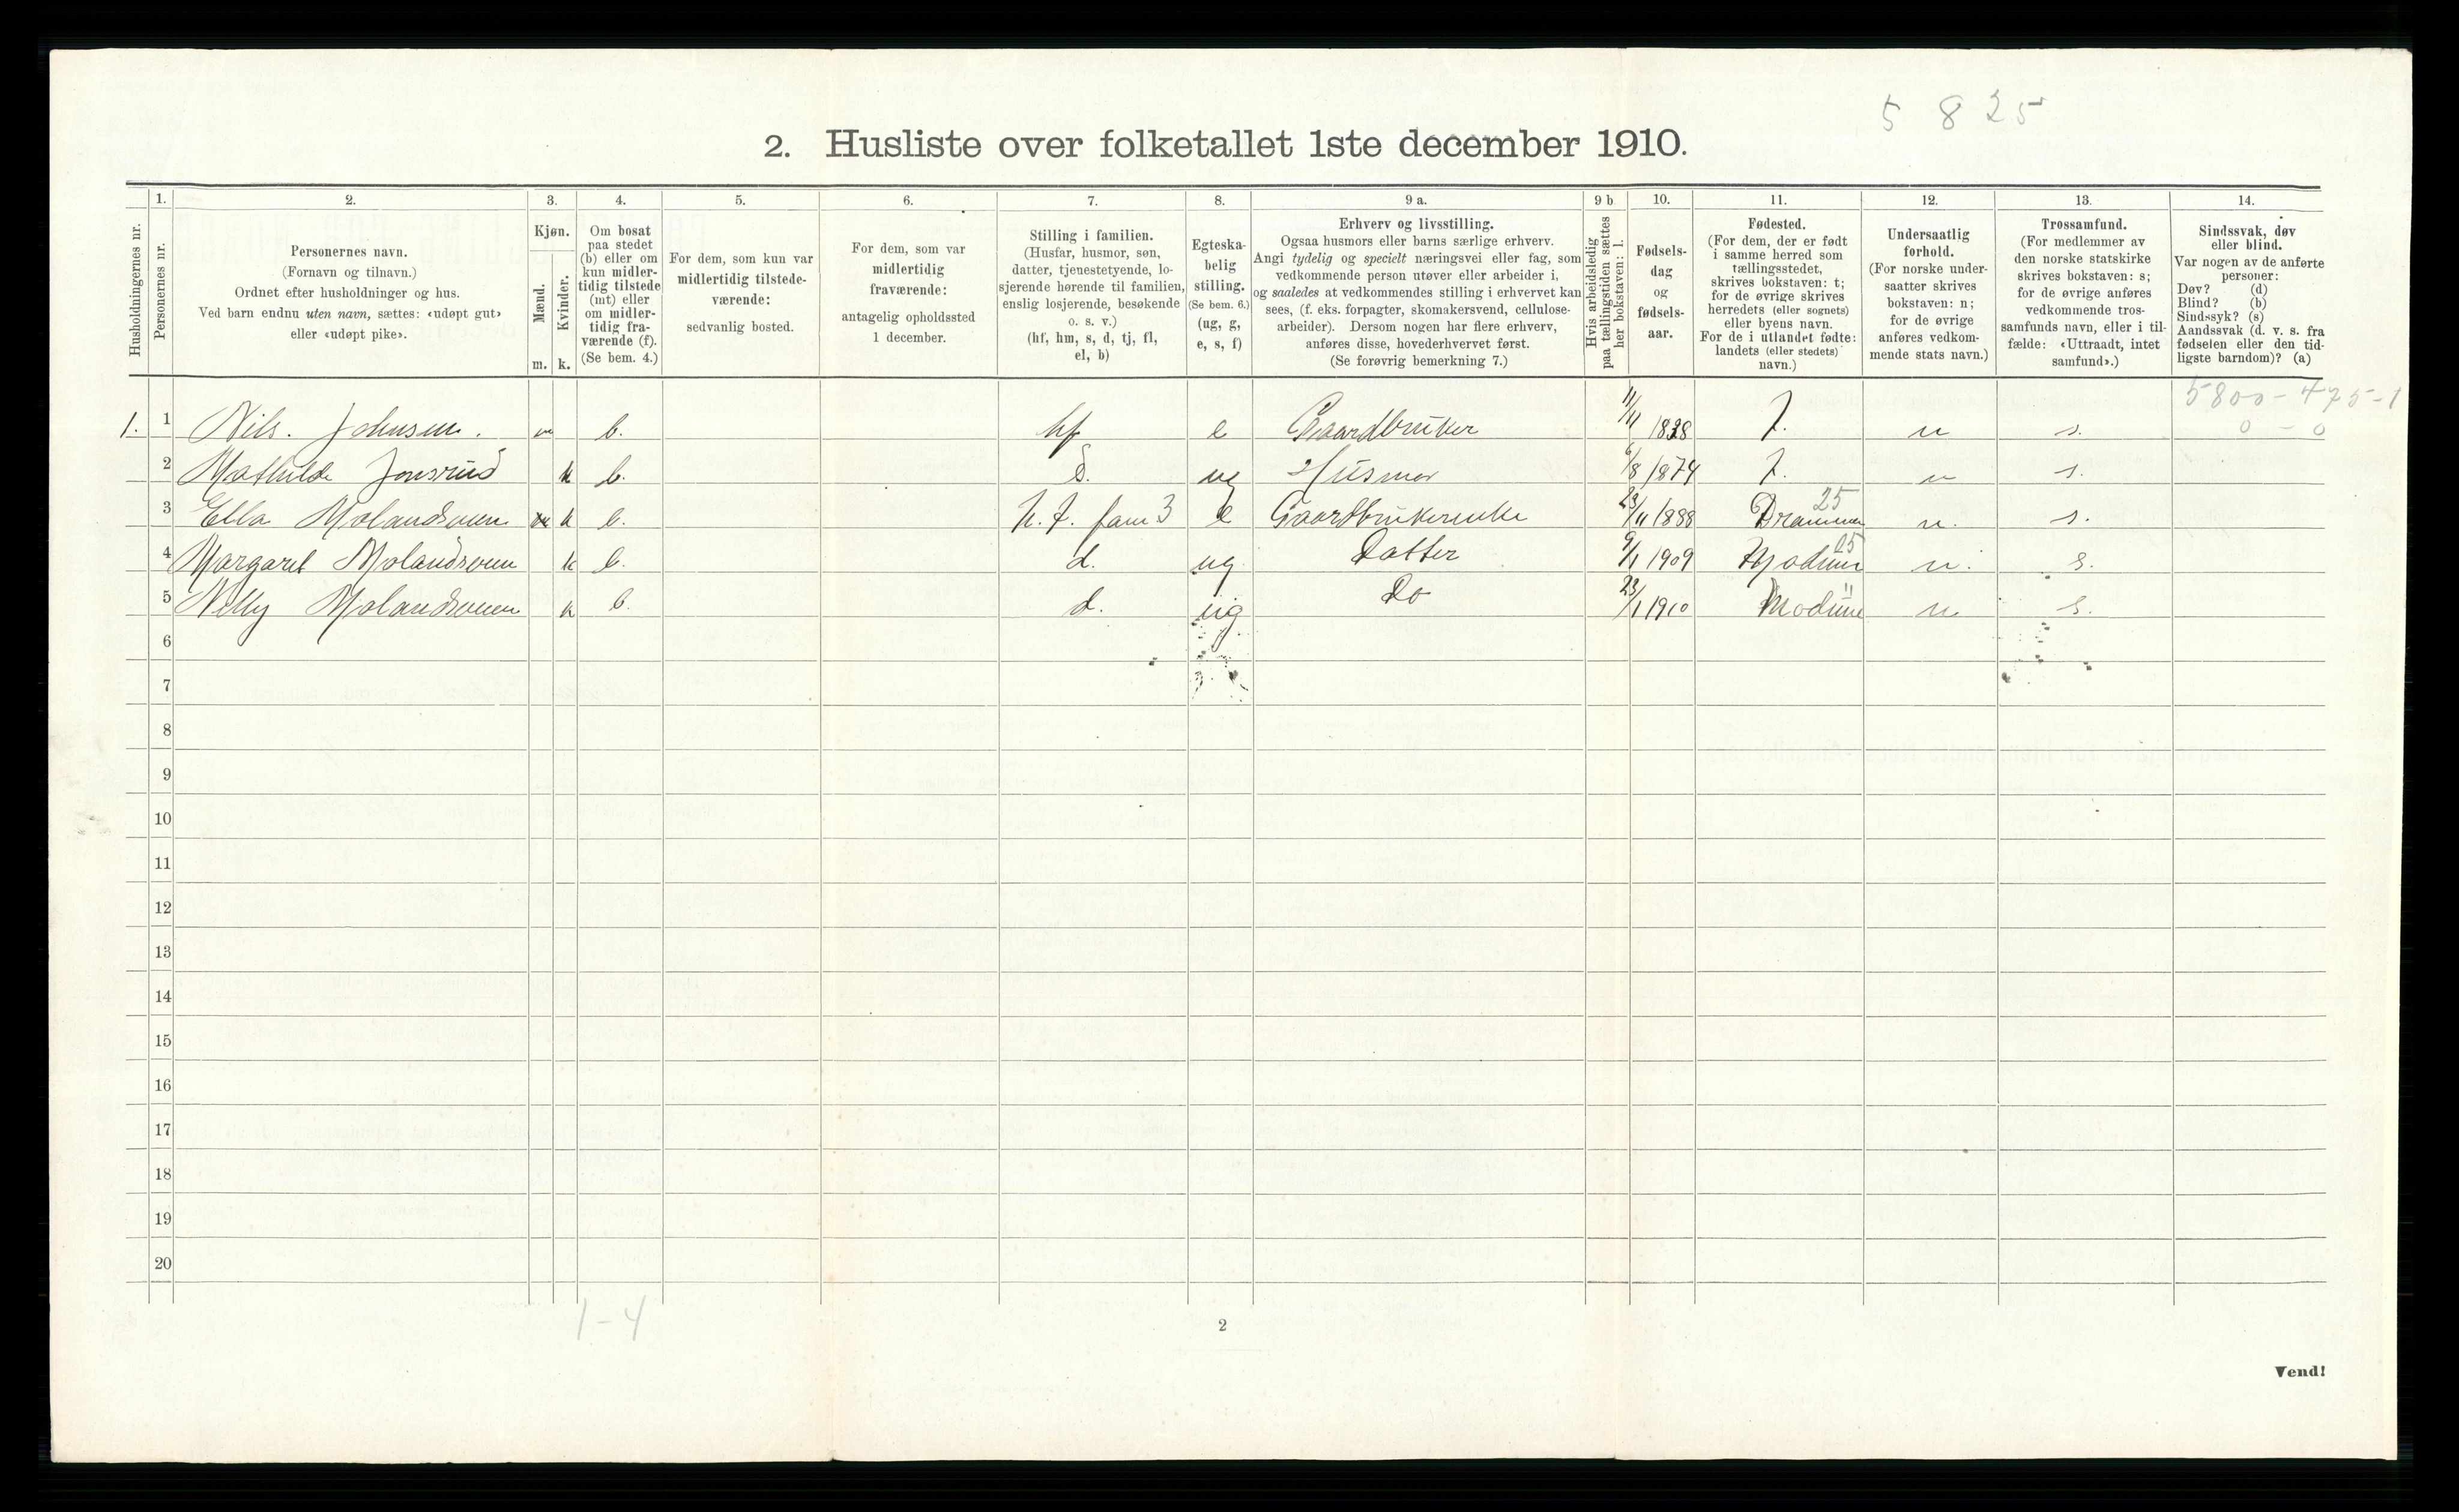 5 8 25
2. Husliste over folketallet 1ste december 1910.
Husholdningernes nr.
1. Personernes nr.
2. Personernes navn.
(Fornavn og tilnavn.)
Ordnet efter husholdninger og hus.
Ved barn endnu uten navn, sættes: «udøpt gut»
eller «udøpt pike».
3. Kjøn.
Mænd. m.
Kvinder. k.
4. Om bosat
paa stedet
(b) eller om
kun midler-
tidig tilstede
(mt) eller
om midler-
tidig fra-
værende (f).
(Se bem. 4.)
5. For dem, som kun var
midlertidig tilstede-
værende:
sedvanlig bosted.
6. For dem, som var
midlertidig
fraværende:
antagelig opholdssted
1 december.
7. Stilling i familien.
(Husfar, husmor, søn,
datter, tjenestetyende, lo-
sjerende hørende til familien,
enslig losjerende, besøkende
o. s. v.)
(hf, hm, s, d, tj, fl,
el, b)
8. Egteska-
belig
stilling.
(Se bem. 6.)
(ug, g,
e, s, f)
9 a. Erhverv og livsstilling.
Ogsaa husmors eller barns særlige erhverv.
Angi tydelig og specielt næringsvei eller fag, som
vedkommende person utøver eller arbeider i,
og saaledes at vedkommendes stilling i erhvervet kan
sees, (f. eks. forpagter, skomakersvend, cellulose-
arbeider). Dersom nogen har flere erhverv,
anføres disse, hovederhvervet først.
(Se forøvrig bemerkning 7.)
9 b. Hvis arbeidsledig
paa tællingstiden sættes
her bokstaven: l.
10. Fødsels-
dag
og
fødsels-
aar.
11. Fødested.
(For dem, der er født
i samme herred som
tællingsstedet,
skrives bokstaven: t;
for de øvrige skrives
herredets (eller sognets)
eller byens navn.
For de i utlandet fødte:
landets (eller stedets)
navn.)
12. Undersaatlig
forhold.
(For norske under-
saatter skrives
bokstaven: n;
for de øvrige
anføres vedkom-
mende stats navn.)
13. Trossamfund.
(For medlemmer av
den norske statskirke
skrives bokstaven: s;
for de øvrige anføres
vedkommende tros-
samfunds navn, eller i til-
fælde: «Uttraadt, intet
samfund».)
14. Sindssvak, døv
eller blind.
Var nogen av de anførte
personer:
Døv? (d)
Blind? (b)
Sindssyk? (s)
Aandssvak (d. v. s. fra
fødselen eller den tid-
ligste barndom)? (a)
5800 - 475 - 1
0 - 0
1. 1 Nils. Johnsen. m b. hf e Gaardbruker 11/11 1838 T. n s.
2 Mathilde Jonsrud k b. d. ug Husmor 6/8 1874 T. n s.
3 Ella Molandsveen k b. h. f. fam 3 e Gaardbrukerenke 23/11 1888 Drammen 25 n. s.
4 Margaret Molandsveen k b. d. ug Datter 9/1 1909 Modum 25 n. s.
5 Nelly Molandsveen k b. d. ug Do 23/1 1910 Modum " n s.
6
7
8
9
10
11
12
13
14
15
16
17
18
19
20
1-4
2
Vend!